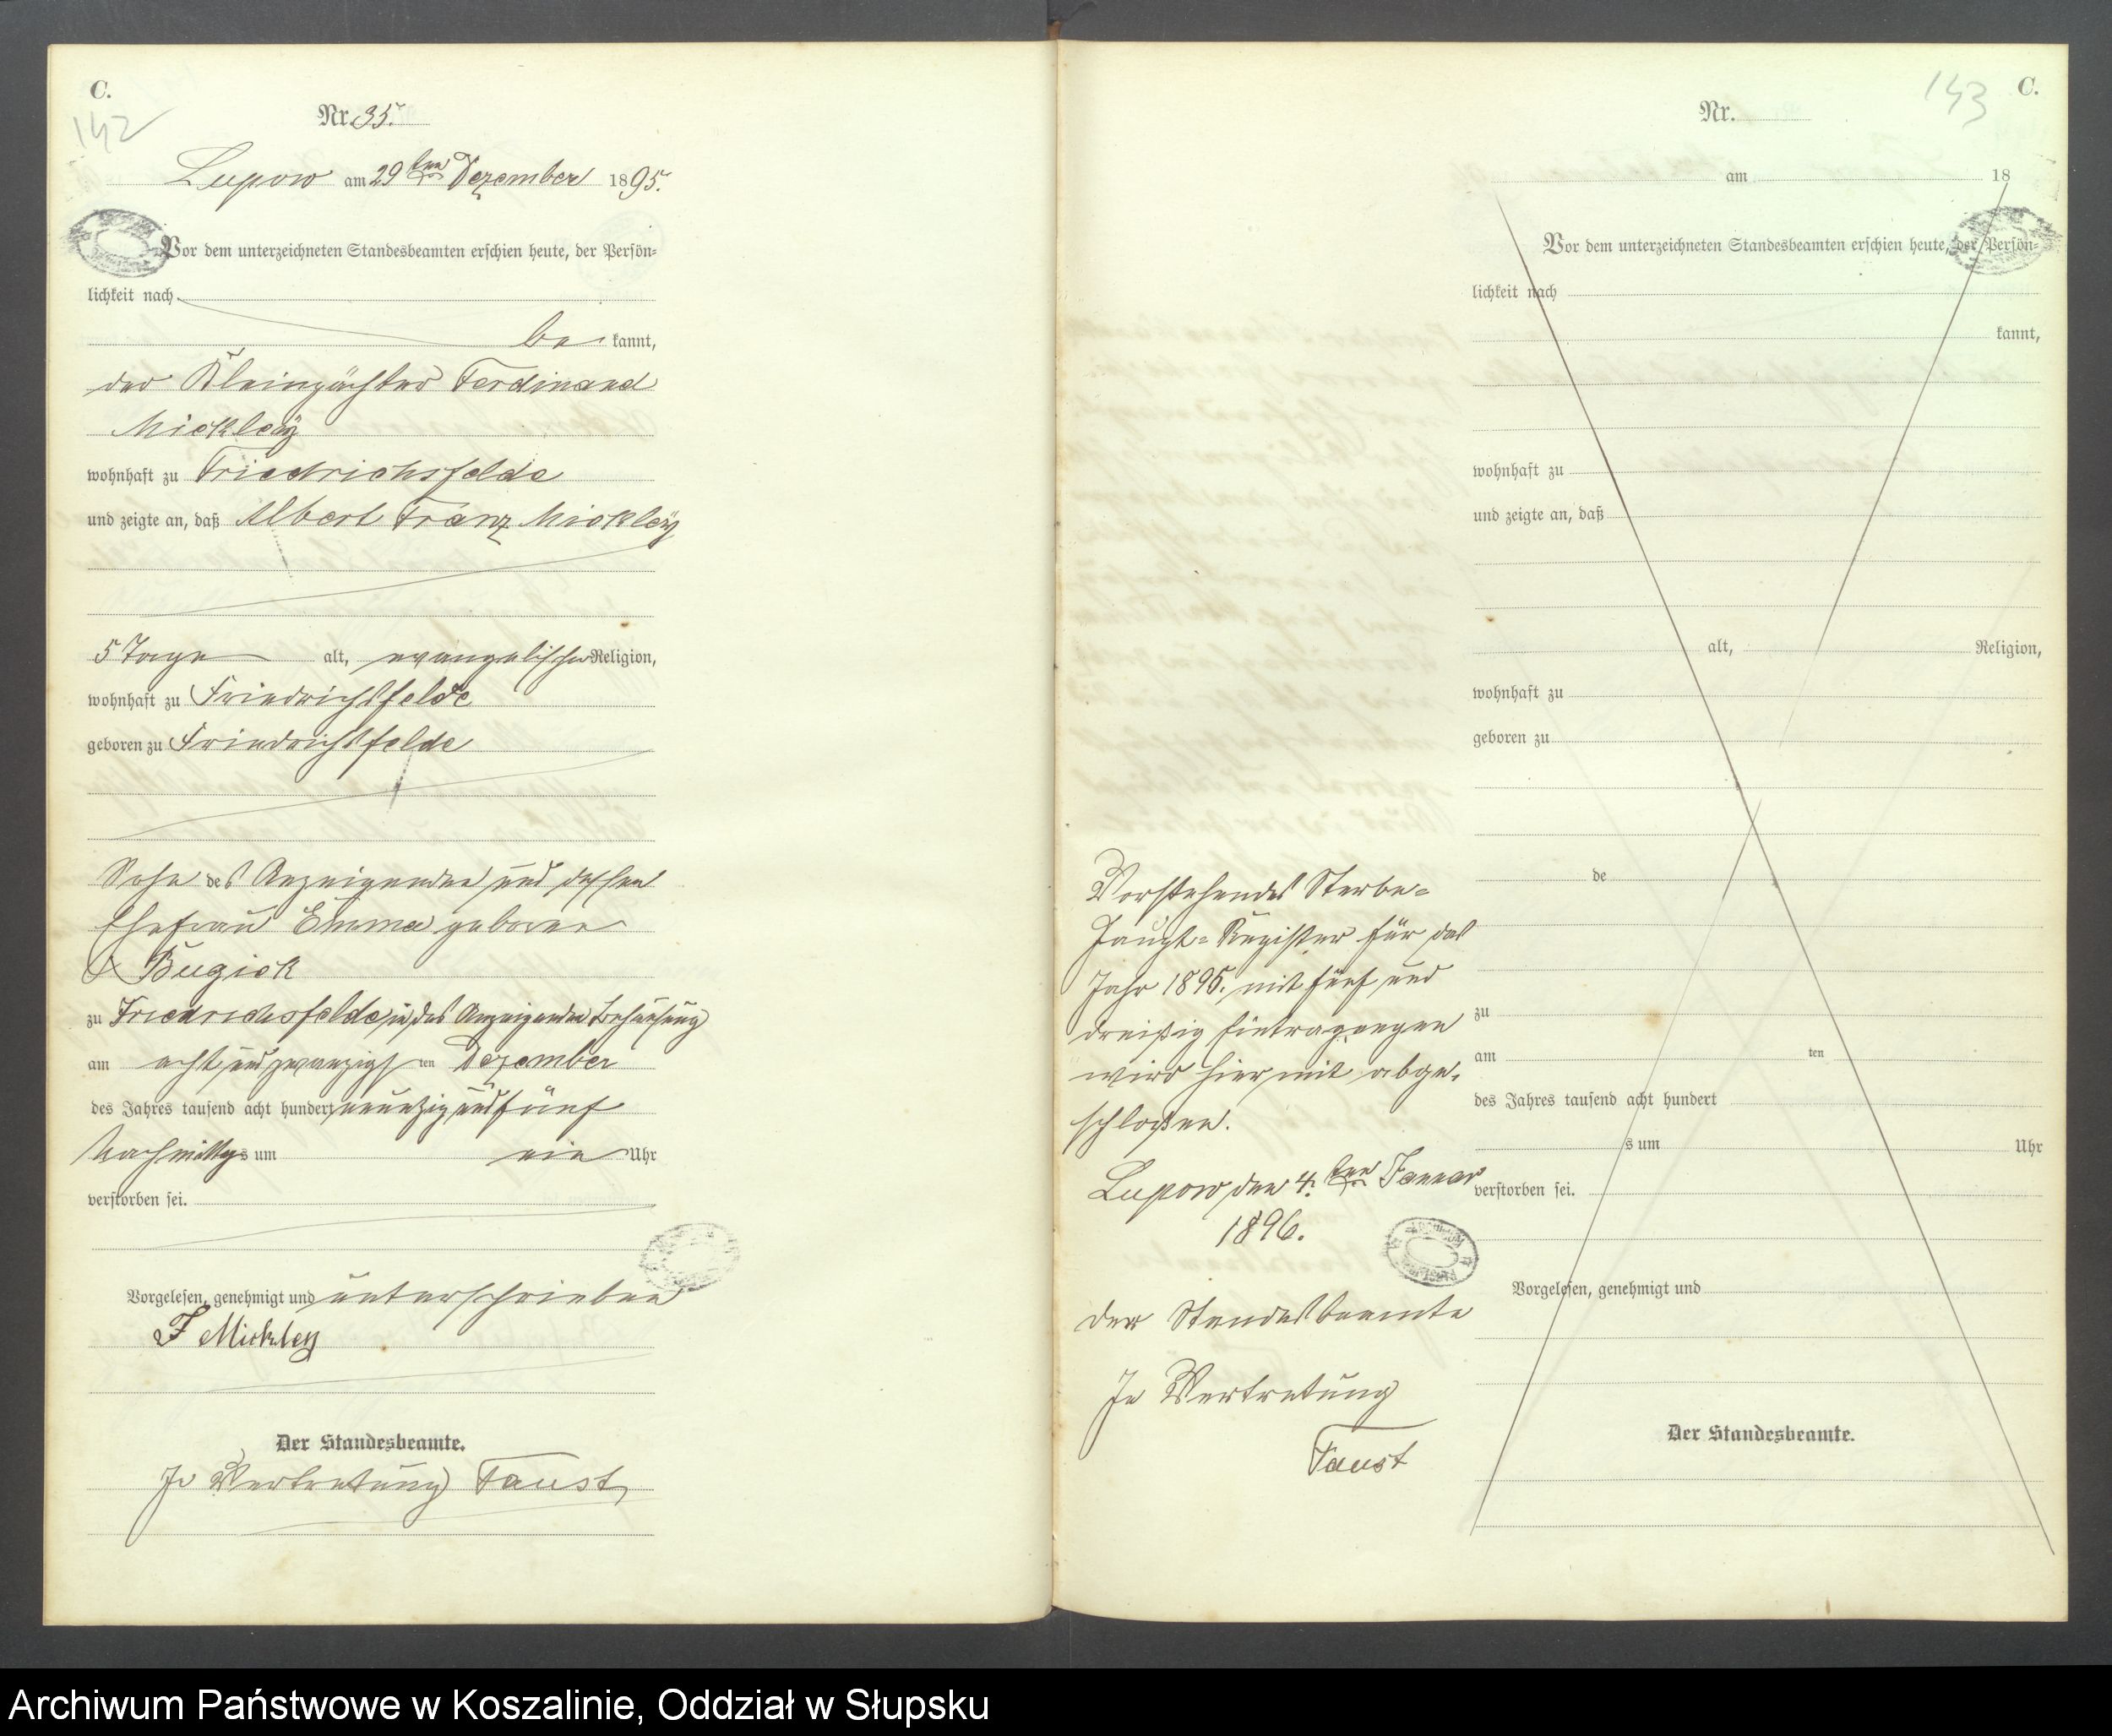 C.
142
Nr. 35.
Lupow am 29ten Dezember 1895.
Vor dem unterzeichneten Standesbeamten erschien heute, der Persön-
lichkeit nach
be kannt,
der Kleinpächter Ferdinand
Mickleÿ
wohnhaft zu Friedrichsfelde
und zeigte an, daß Albert Franz Mickleÿ
5 Tage alt, evangelischer Religion,
wohnhaft zu Friedrichsfelde
geboren zu Friedrichsfelde
Sohn des Anzeigenden und dessen
Ehefrau Emma geborene
Bugick
zu Friedrichsfelde in des Anzeigenden Behausung
am acht und zwanzigs ten Dezember
des Jahres tausend acht hundert neunzig und fünf
Nachmittags um ein Uhr
verstorben sei.
Vorgelesen, genehmigt und unterschrieben
F Mickley
Der Standesbeamte.
In Vertretung Faust
Vorstehendes Sterbe-
Haupt-Register für das
Jahr 1895. mit fünf und
dreißig Eintragungen
wird hiermit abge-
schloßen.
Lupow, den 4ten Januar
1896.
Der Standesbeamte
In Vertretung
Faust
143
C.
Nr.
am 18
Vor dem unterzeichneten Standesbeamten erschien heute, der Persön-
lichkeit nach
kannt,
wohnhaft zu
und zeigte an, daß
alt, Religion,
wohnhaft zu
geboren zu
de
zu
am ten
des Jahres tausend acht hundert
s um Uhr
verstorben sei.
Vorgelesen, genehmigt und
Der Standesbeamte.
Archiwum Państwowe w Koszalinie, Oddział w Słupsku